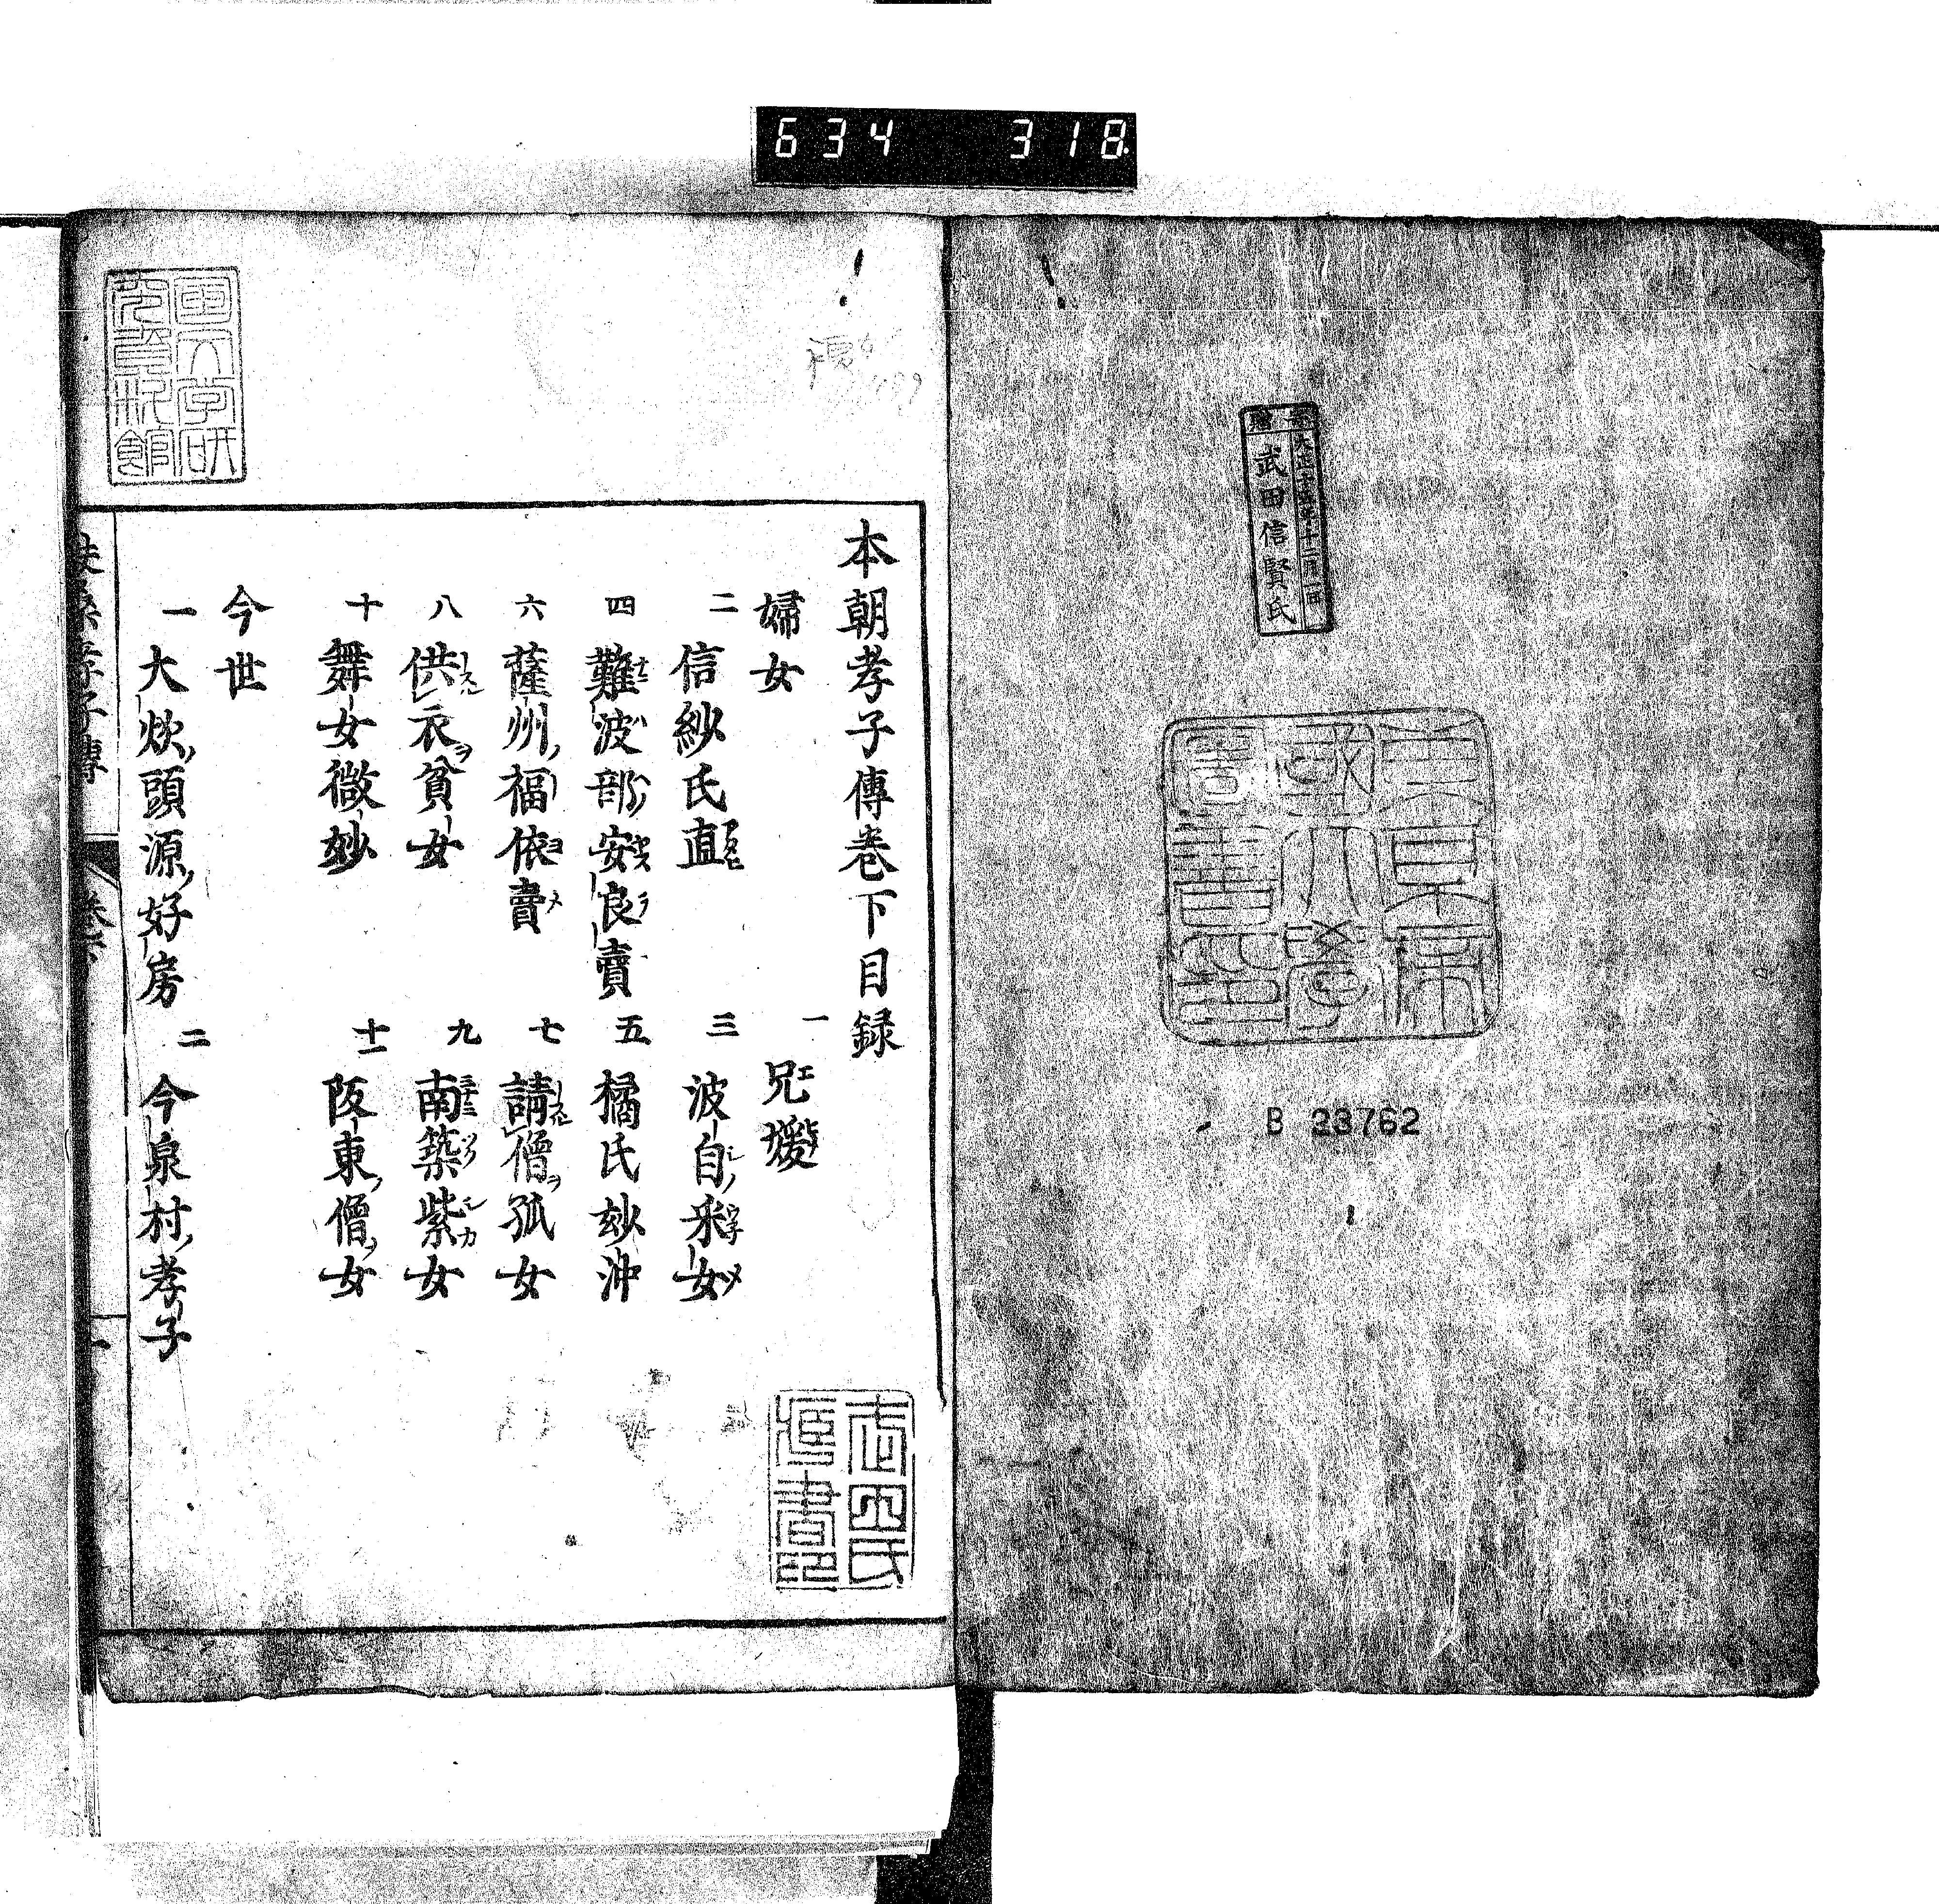 634 318
寄贈
大正十五年十二月一日
武田信賢氏
東京帝
國大學
圖書印
B 23762
本朝孝子傳巻下目録
婦女
一 兄媛
二 信紗氏直
三 波自采女
四 難波部安良賣
五 橘氏妙沖
六 薩州福依賣
七 請僧孤女
八 供衣貧女
九 南築紫女
十 舞女微妙
十一 阪東僧女
今世
一 大炊頭源好房
二 今泉村孝子
孝子傳
卷下
一
國文学研
究資料館
武田氏
藏書印